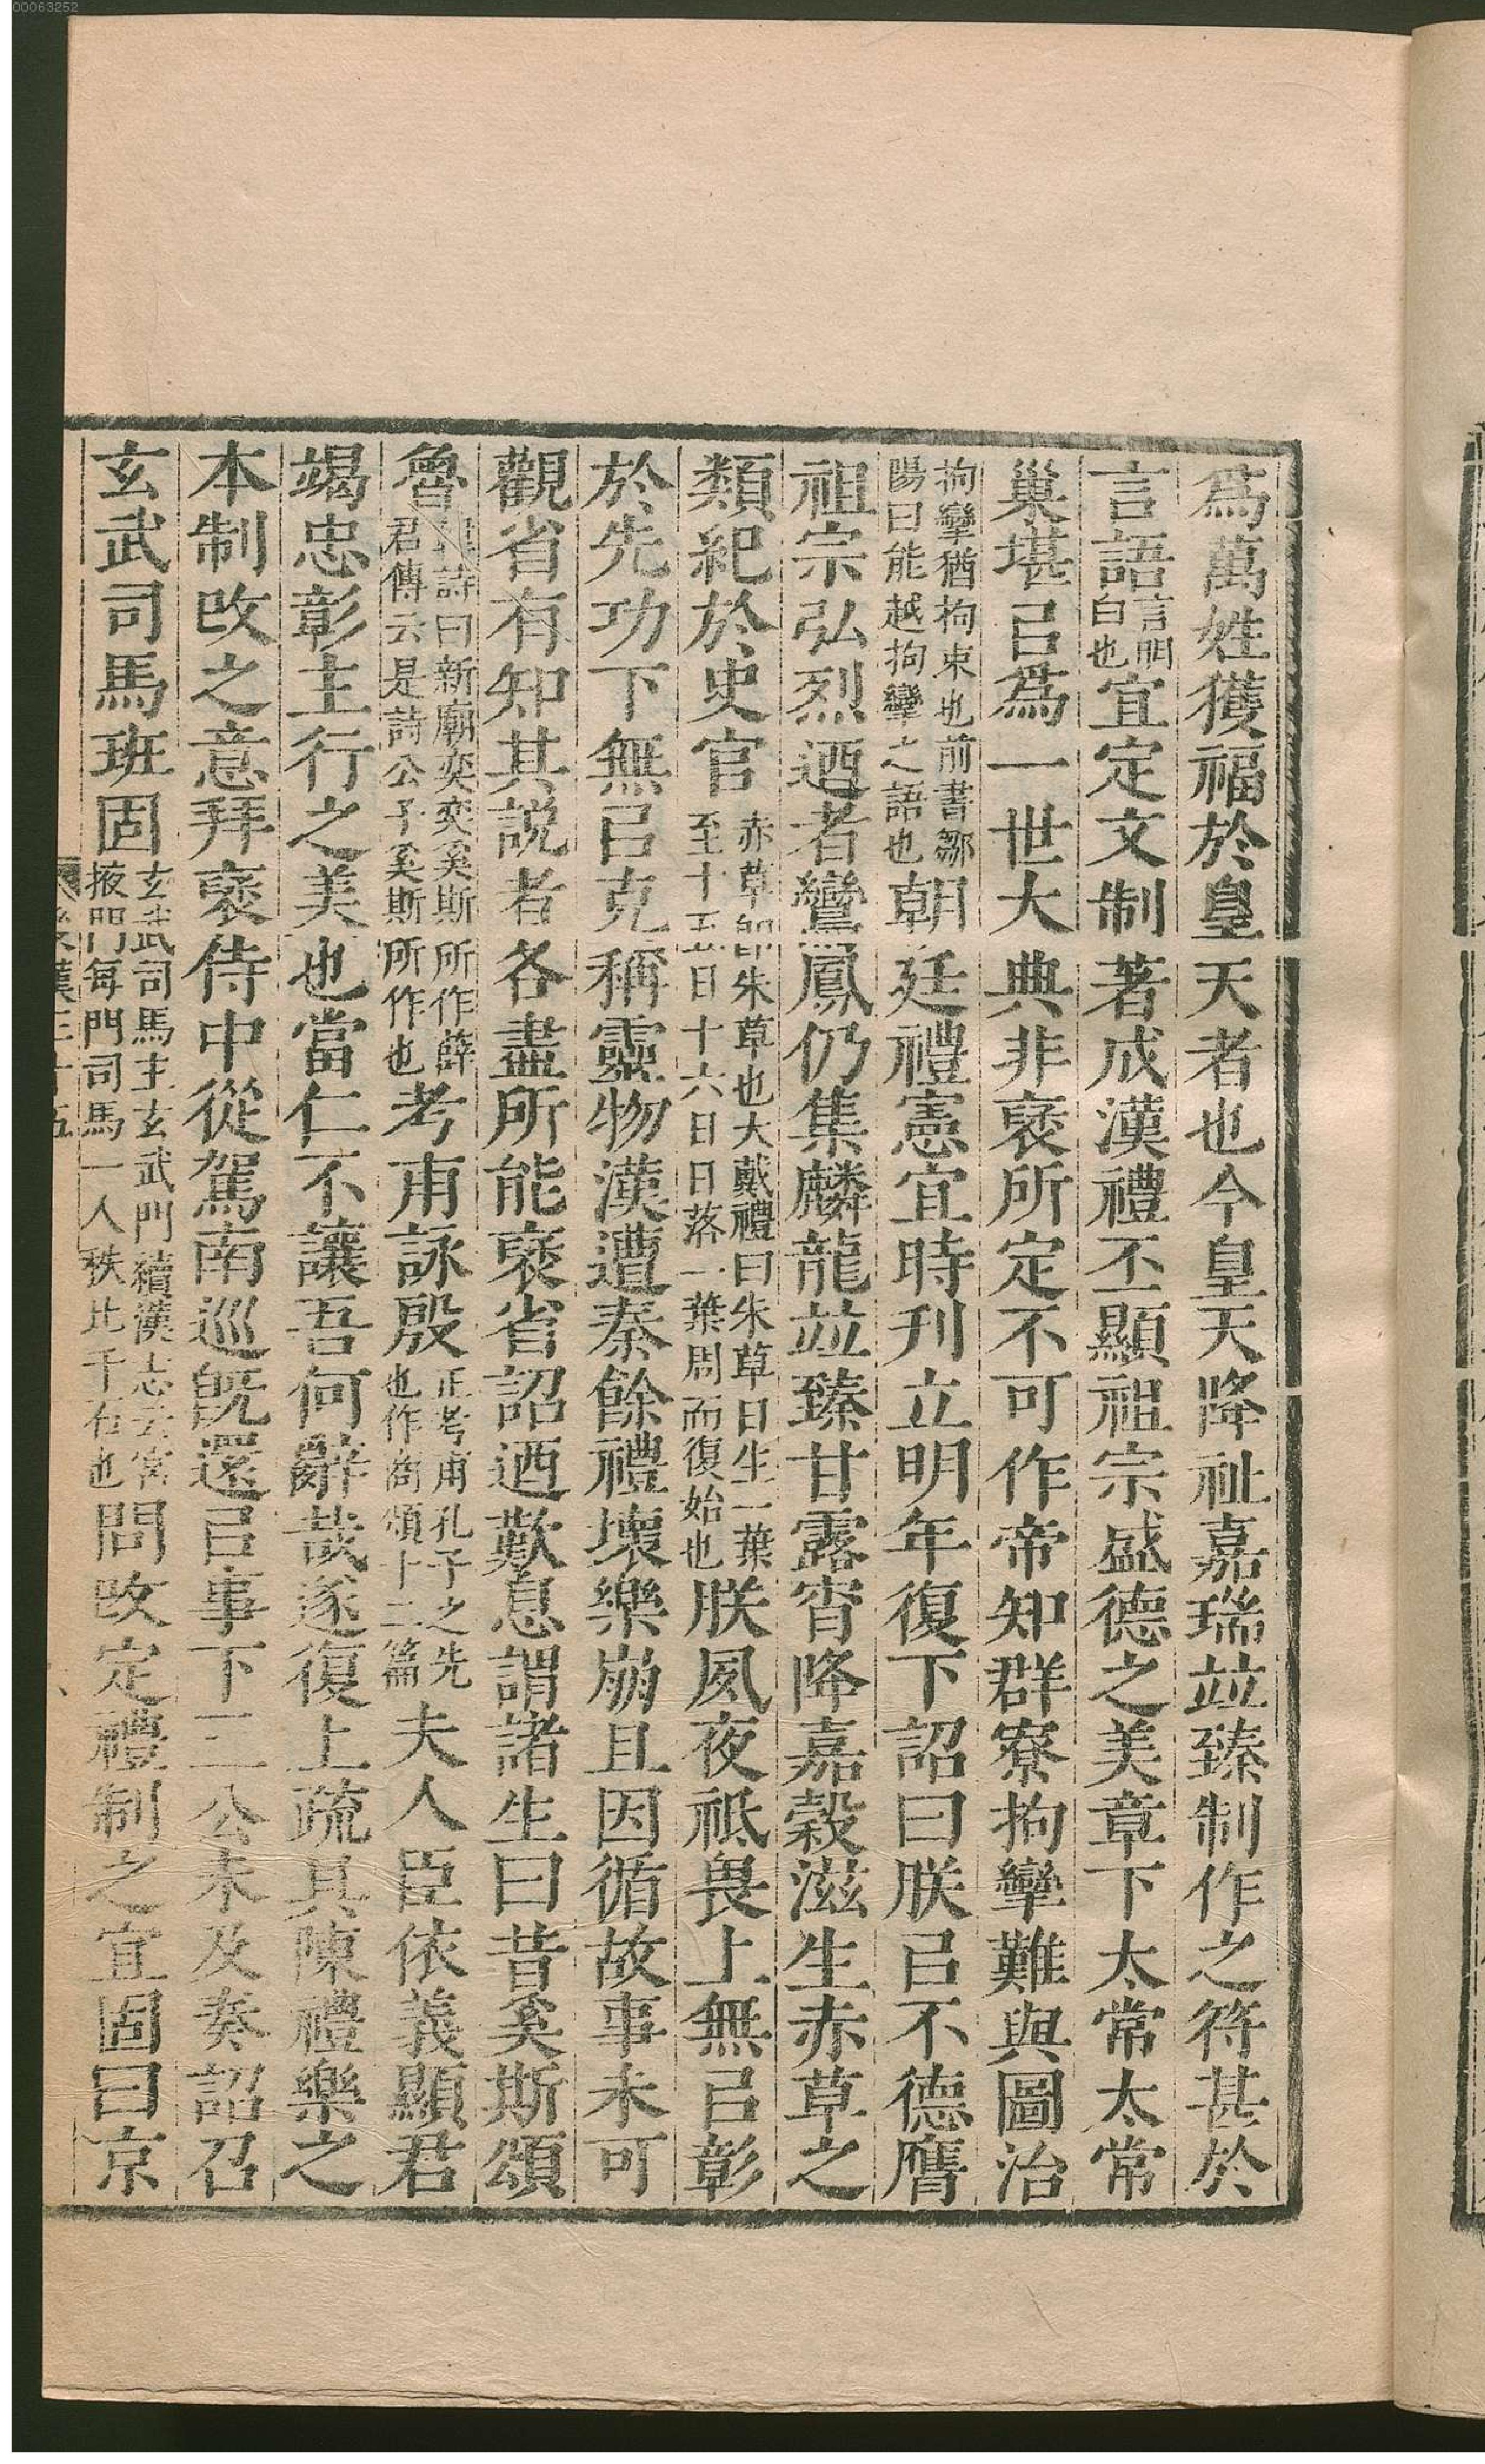 00063252
爲萬姓獲福於皇天者也今皇天降祉嘉瑞竝臻制作之符甚於
言語言明白也宜定文制著成漢禮丕顯祖宗盛德之美章下太常太常
巢堪㠯爲一世大典非襃所定不可作帝知群寮拘攣難與圖治
拘攣猶拘束也前書鄒陽曰能越拘攣之語也朝廷禮憲宜時刊立明年復下詔曰朕㠯不德膺
祖宗弘烈迺者鸞鳳仍集麟龍竝臻甘露宵降嘉穀滋生赤草之
類紀於史官赤草卽朱草也大戴禮曰朱草日生一葉至十五日十六日日落一葉周而復始也朕夙夜祗畏上無㠯彰
於先功下無㠯克稱靈物漢遭秦餘禮壞樂崩且因循故事未可
觀省有知其說者各盡所能襃省詔迺歎息謂諸生曰昔奚斯頌
魯詩曰新廟奕奕奚斯所作薛君傳云是詩公子奚斯所作也考甫詠殷正考甫孔子之先也作商頌十二篇夫人臣依義顯君
竭忠彰主行之美也當仁不讓吾何辭哉遂復上疏具陳禮樂之
本制改之意拜襃侍中從駕南巡旣還㠯事下三公未及奏詔召
玄武司馬班固玄武司馬主玄武門續漢志云宮掖門每門司馬一人秩比千石也問改定禮制之宜固曰京
後漢三十五